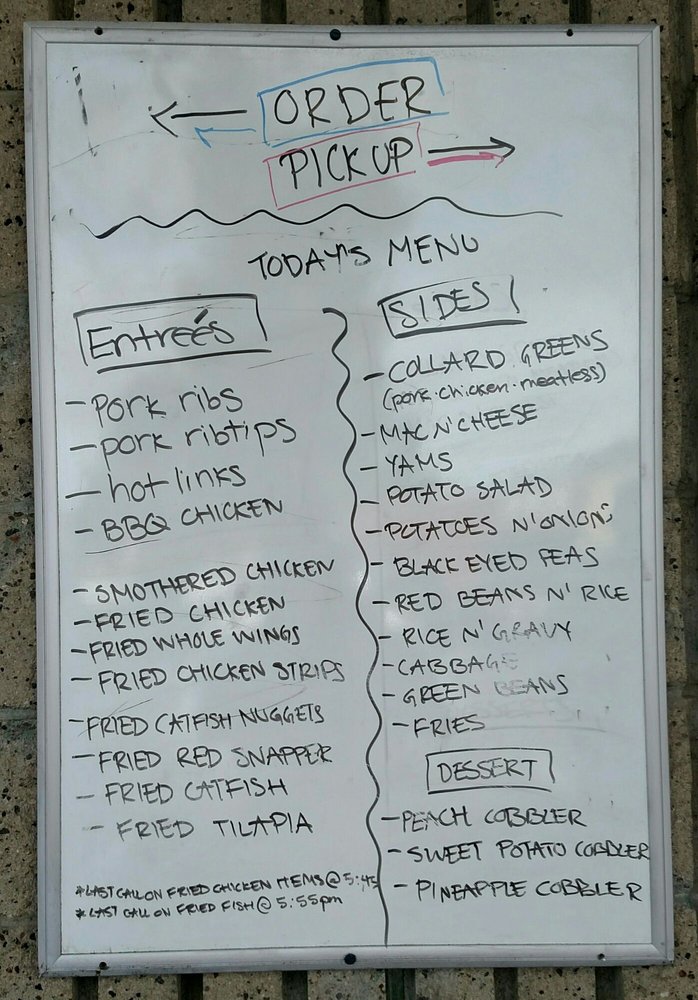 ORDER
PICKUP
TODAY'S MENU
Entreés
- Pork ribs
- pork ribtips
- hot links
- BBQ CHICKEN
- SMOTHERED CHICKEN
- FRIED CHICKEN
- FRIED WHOLE WINGS
- FRIED CHICKEN STRIPS
- FRIED CATFISH NUGGETS
- FRIED RED SNAPPER
- FRIED CATFISH
- FRIED TILAPIA
* LAST CALL ON FRIED CHICKEN ITEMS @ 5:45
* LAST CALL ON FRIED FISH @ 5:55pm
SIDES
- COLLARD GREENS
(pork · chicken · meatless)
- MAC N' CHEESE
- YAMS
- POTATO SALAD
- POTATOES N' ONIONS
- BLACK EYED PEAS
- RED BEANS N' RICE
- RICE N' GRAVY
- CABBAGE
- GREEN BEANS
- FRIES
DESSERT
- PEACH COBBLER
- SWEET POTATO COBBLER
- PINEAPPLE COBBLER